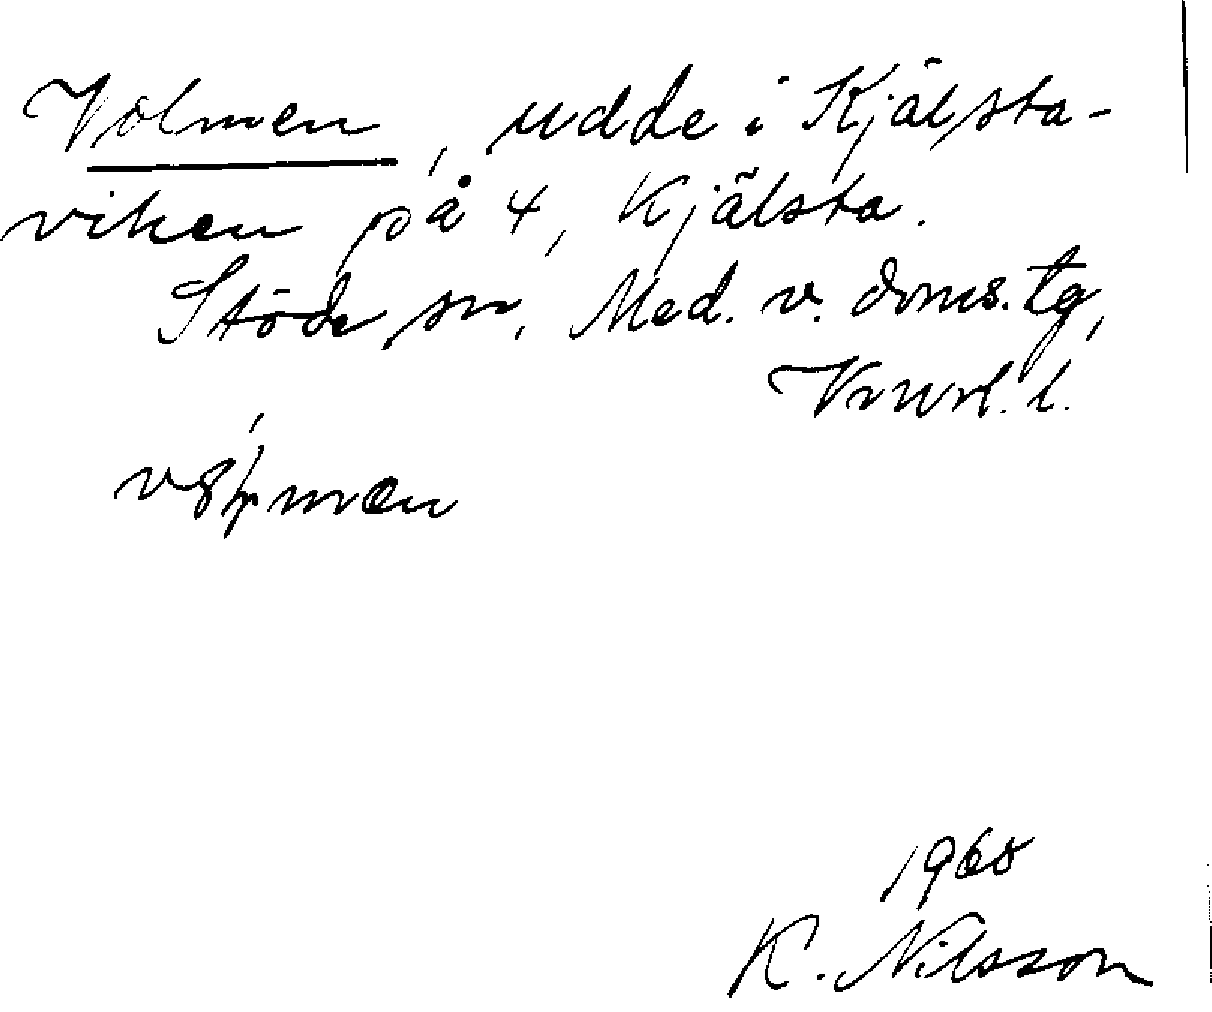 Volmen, udde i Kjälsta-
viken på 4, Kjälsta.
Stöde sn, Med. v. doms. tg,
Vnrl. l.
1968
K. Nilsson